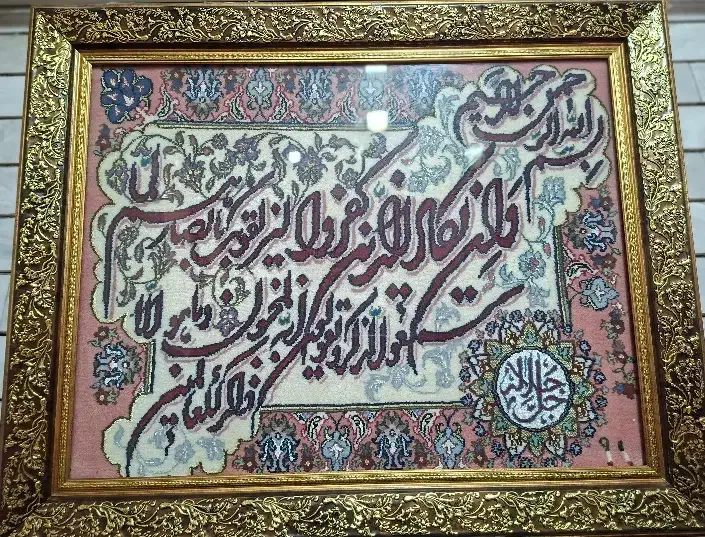 بسم الله الرحمن الرحیم
وان یکاد الذین کفروا لیزلقونک بابصارهم لما
سمعوا الذکر ویقولون انه لمجنون وما هو الا
ذکر للعالمین
جل جلاله